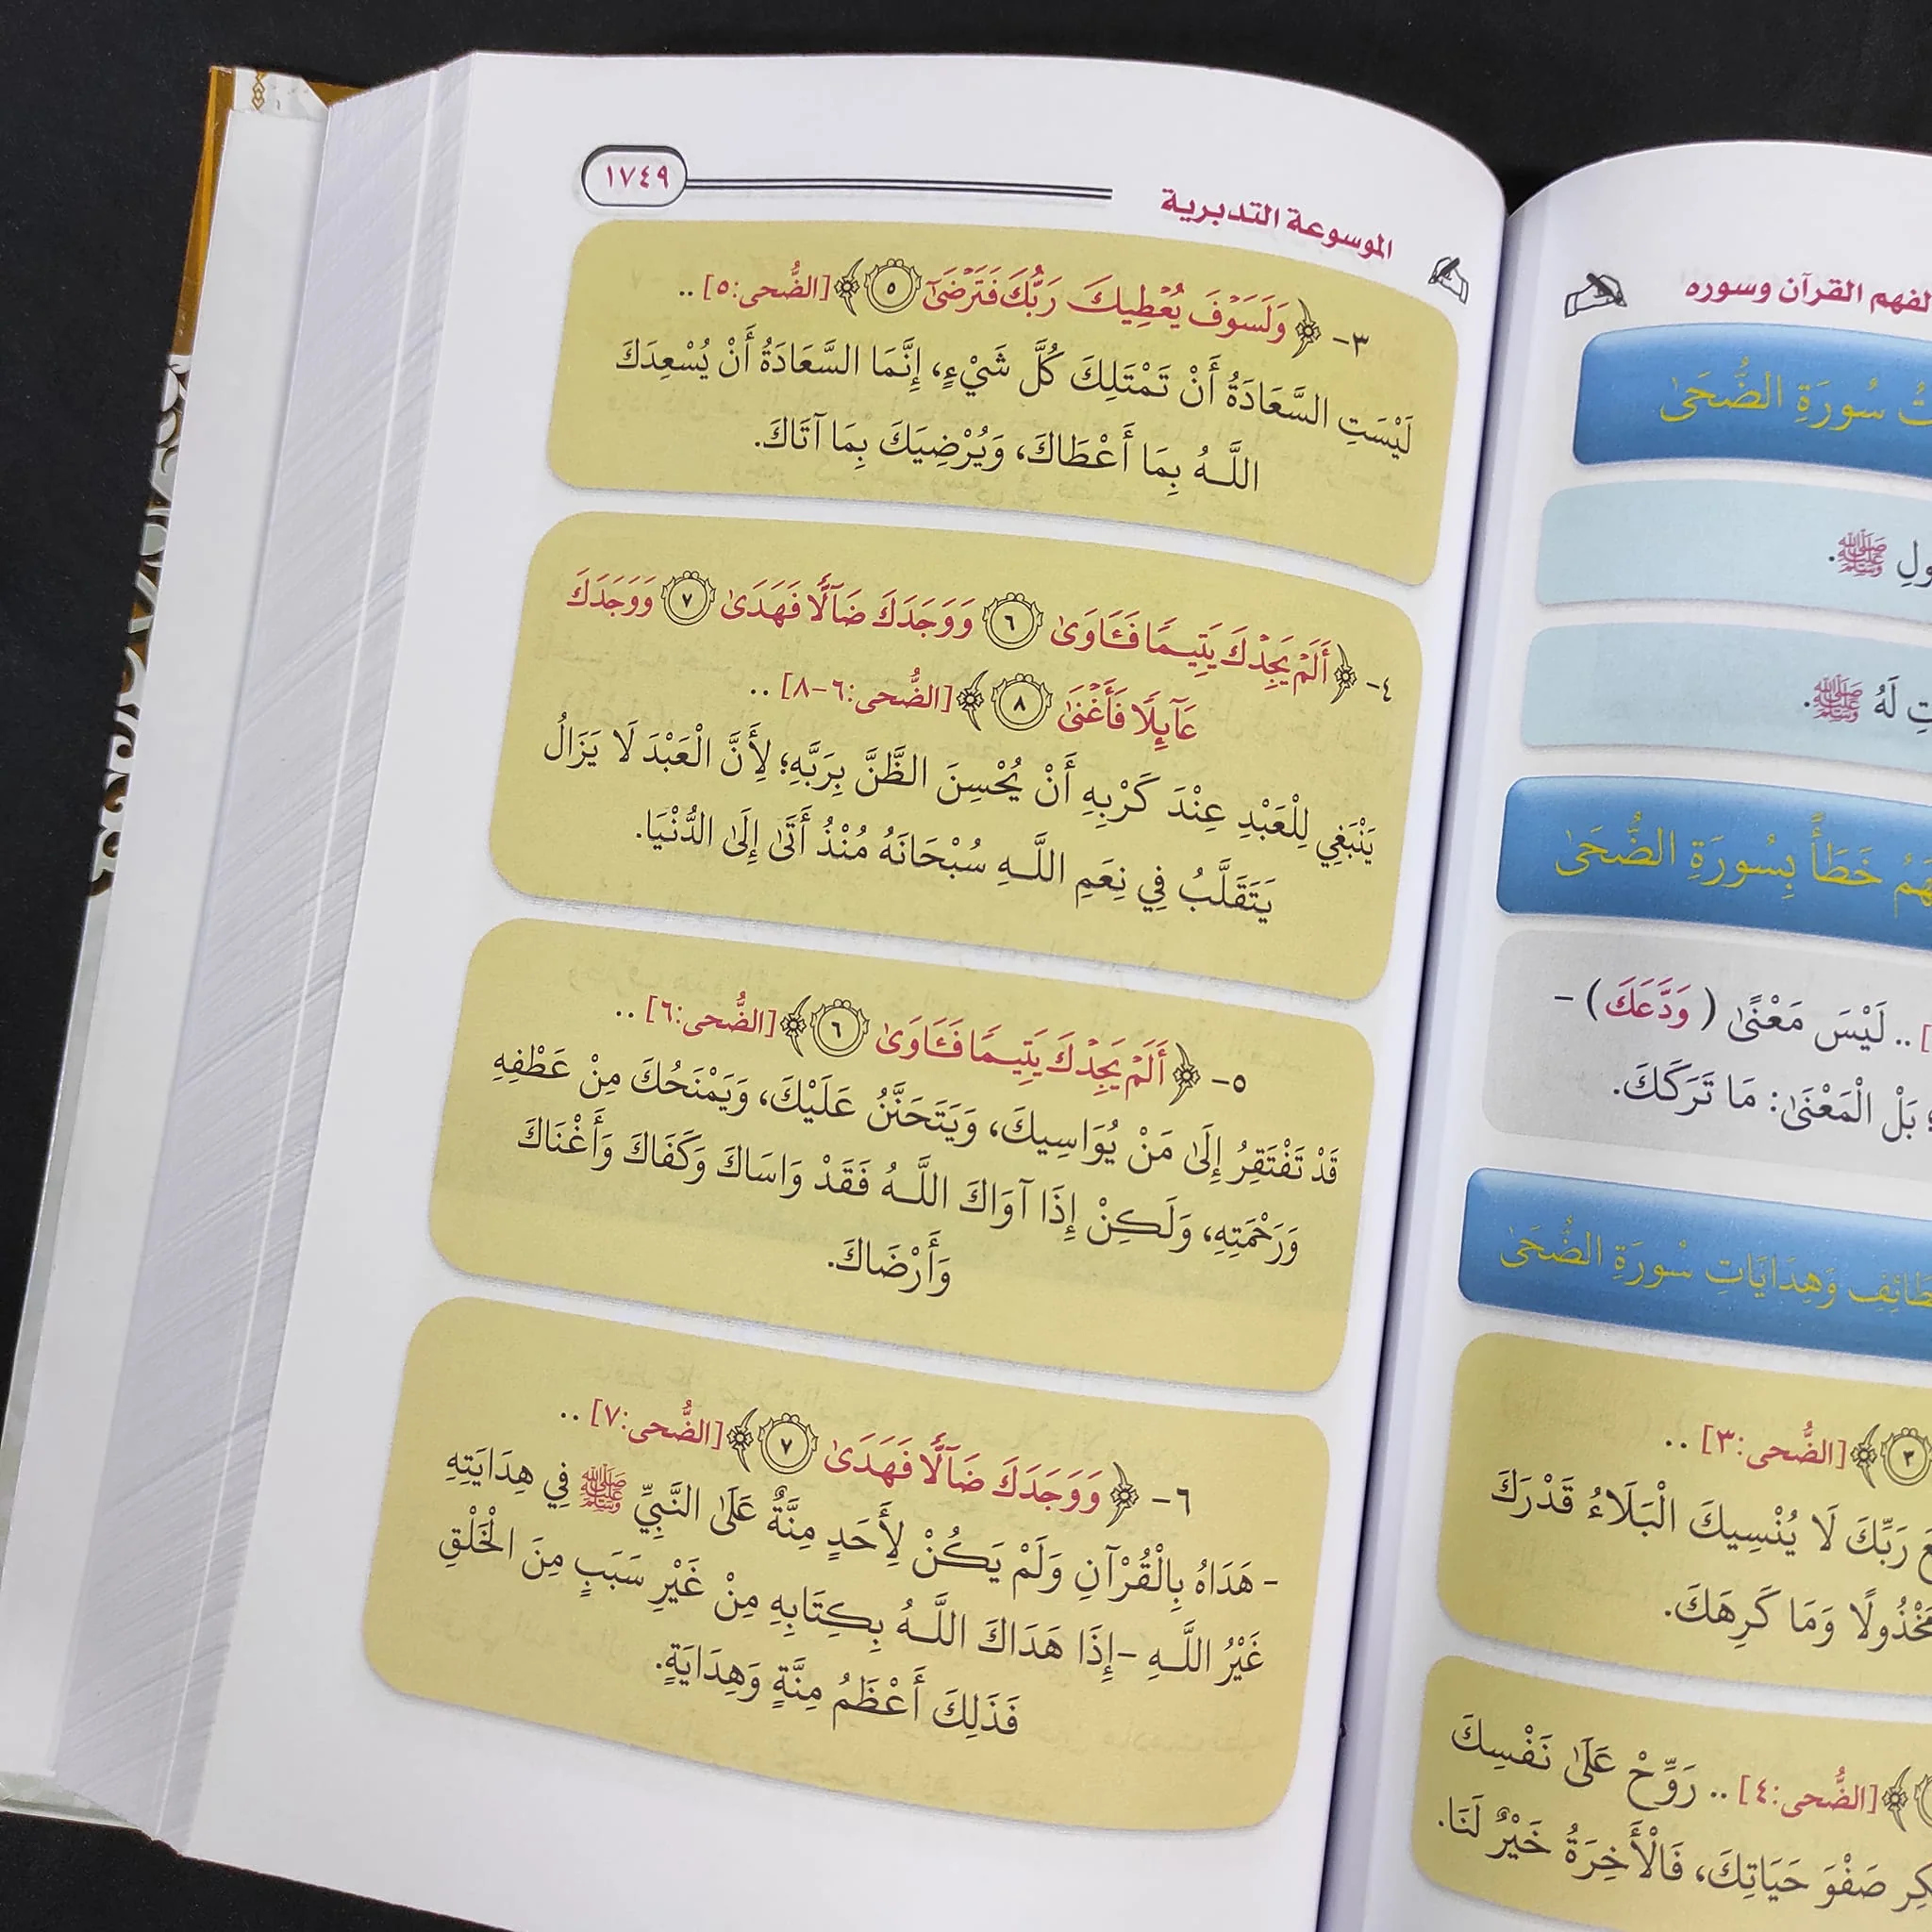 لفهم القرآن وسوره
سُورَةِ الضُّحَىٰ
ﷺ.
لَهُ ﷺ.
خَطَأً بِسُورَةِ الضُّحَىٰ
.. لَيْسَ مَعْنَىٰ (وَدَّعَكَ) -
بَلْ الْمَعْنَىٰ: مَا تَرَكَكَ.
وَهِدَايَاتِ سُورَةِ الضُّحَىٰ
٣ ﴾ [الضُّحى:٣] ..
رَبِّكَ لَا يُنْسِيكَ الْبَلَاءُ قَدْرَكَ
وَمَا كَرِهَكَ.
﴾ [الضُّحى:٤] .. رَوِّحْ عَلَىٰ نَفْسِكَ
صَفْوَ حَيَاتِكَ، فَالْأَخِرَةُ خَيْرٌ لَنَا.
الموسوعة التدبرية
١٧٤٩
٣- ﴿ وَلَسَوْفَ يُعْطِيكَ رَبُّكَ فَتَرْضَىٰٓ ٥ ﴾ [الضُّحى:٥] ..
لَيْسَتِ السَّعَادَةُ أَنْ تَمْتَلِكَ كُلَّ شَيْءٍ، إِنَّمَا السَّعَادَةُ أَنْ يُسْعِدَكَ
اللَّـهُ بِمَا أَعْطَاكَ، وَيُرْضِيَكَ بِمَا آتَاكَ.
٤- ﴿ أَلَمْ يَجِدْكَ يَتِيمًا فَـَٔاوَىٰ ٦ وَوَجَدَكَ ضَآلًّا فَهَدَىٰ ٧ وَوَجَدَكَ
عَآئِلًا فَأَغْنَىٰ ٨ ﴾ [الضُّحى:٦-٨] ..
يَنْبَغِي لِلْعَبْدِ عِنْدَ كَرْبِهِ أَنْ يُحْسِنَ الظَّنَّ بِرَبَّهِ؛ لِأَنَّ الْعَبْدَ لَا يَزَالُ
يَتَقَلَّبُ فِي نِعَمِ اللَّـهِ سُبْحَانَهُ مُنْذُ أَتَىٰ إِلَىٰ الدُّنْيَا.
٥- ﴿ أَلَمْ يَجِدْكَ يَتِيمًا فَـَٔاوَىٰ ٦ ﴾ [الضُّحى:٦] ..
قَدْ تَفْتَقِرُ إِلَىٰ مَنْ يُوَاسِيكَ، وَيَتَحَنَّنُ عَلَيْكَ، وَيَمْنَحُكَ مِنْ عَطْفِهِ
وَرَحْمَتِهِ، وَلَكِنْ إِذَا آوَاكَ اللَّـهُ فَقَدْ وَاسَاكَ وَكَفَاكَ وَأَغْنَاكَ
وَأَرْضَاكَ.
٦- ﴿ وَوَجَدَكَ ضَآلًّا فَهَدَىٰ ٧ ﴾ [الضُّحى:٧] ..
- هَدَاهُ بِالْقُرْآنِ وَلَمْ يَكُنْ لِأَحَدٍ مِنَّةٌ عَلَىٰ النَّبِيِّ ﷺ فِي هِدَايَتِهِ
غَيْرُ اللَّـهِ -إِذَا هَدَاكَ اللَّـهُ بِكِتَابِهِ مِنْ غَيْرِ سَبَبٍ مِنَ الْخَلْقِ
فَذَلِكَ أَعْظَمُ مِنَّةٍ وَهِدَايَةٍ.